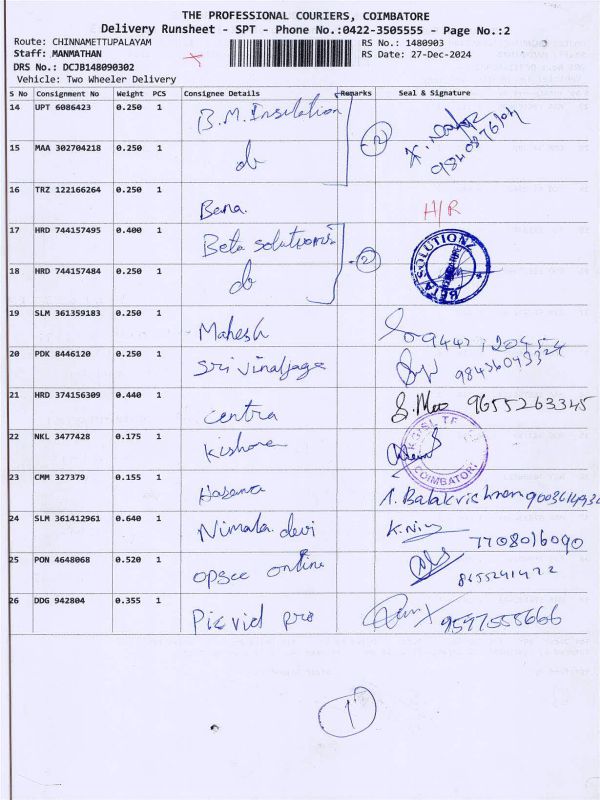 THE PROFESSIONAL COURIERS, COIMBATORE
Delivery Runsheet - SPT - Phone No.:0422-3505555 - Page No.:2
Route: CHINNAMETTUPALAYAM RS No.: 1480903
Staff: MANMATHAN RS Date: 27-Dec-2024
DRS No.: DCJB148090302
Vehicle: Two Wheeler Delivery
S No Consignment No Weight PCS Consignee Details Remarks Seal & Signature
14 UPT 6086423 0.250 1 B.M. Insulation
15 MAA 302704218 0.250 1 do (2)
16 TRZ 122166264 0.250 1 Bana H/R
17 HRD 744157495 0.400 1 Beta solutions BETA SOLUTIONZ
18 HRD 744157484 0.250 1 do (2)
19 SLM 361359183 0.250 1 Mahesh
20 PDK 8446120 0.250 1 Sri Vinayaga
21 HRD 374156309 0.440 1 Centra 9655263345
22 NKL 3477428 0.175 1 Kishore COIMBATORE
23 CMM 327379 0.155 1
24 SLM 361412961 0.640 1 Nimala devi 7708016090
25 PON 4648068 0.520 1 online
26 DDG 942804 0.355 1 Picvid pro 9597555666
1